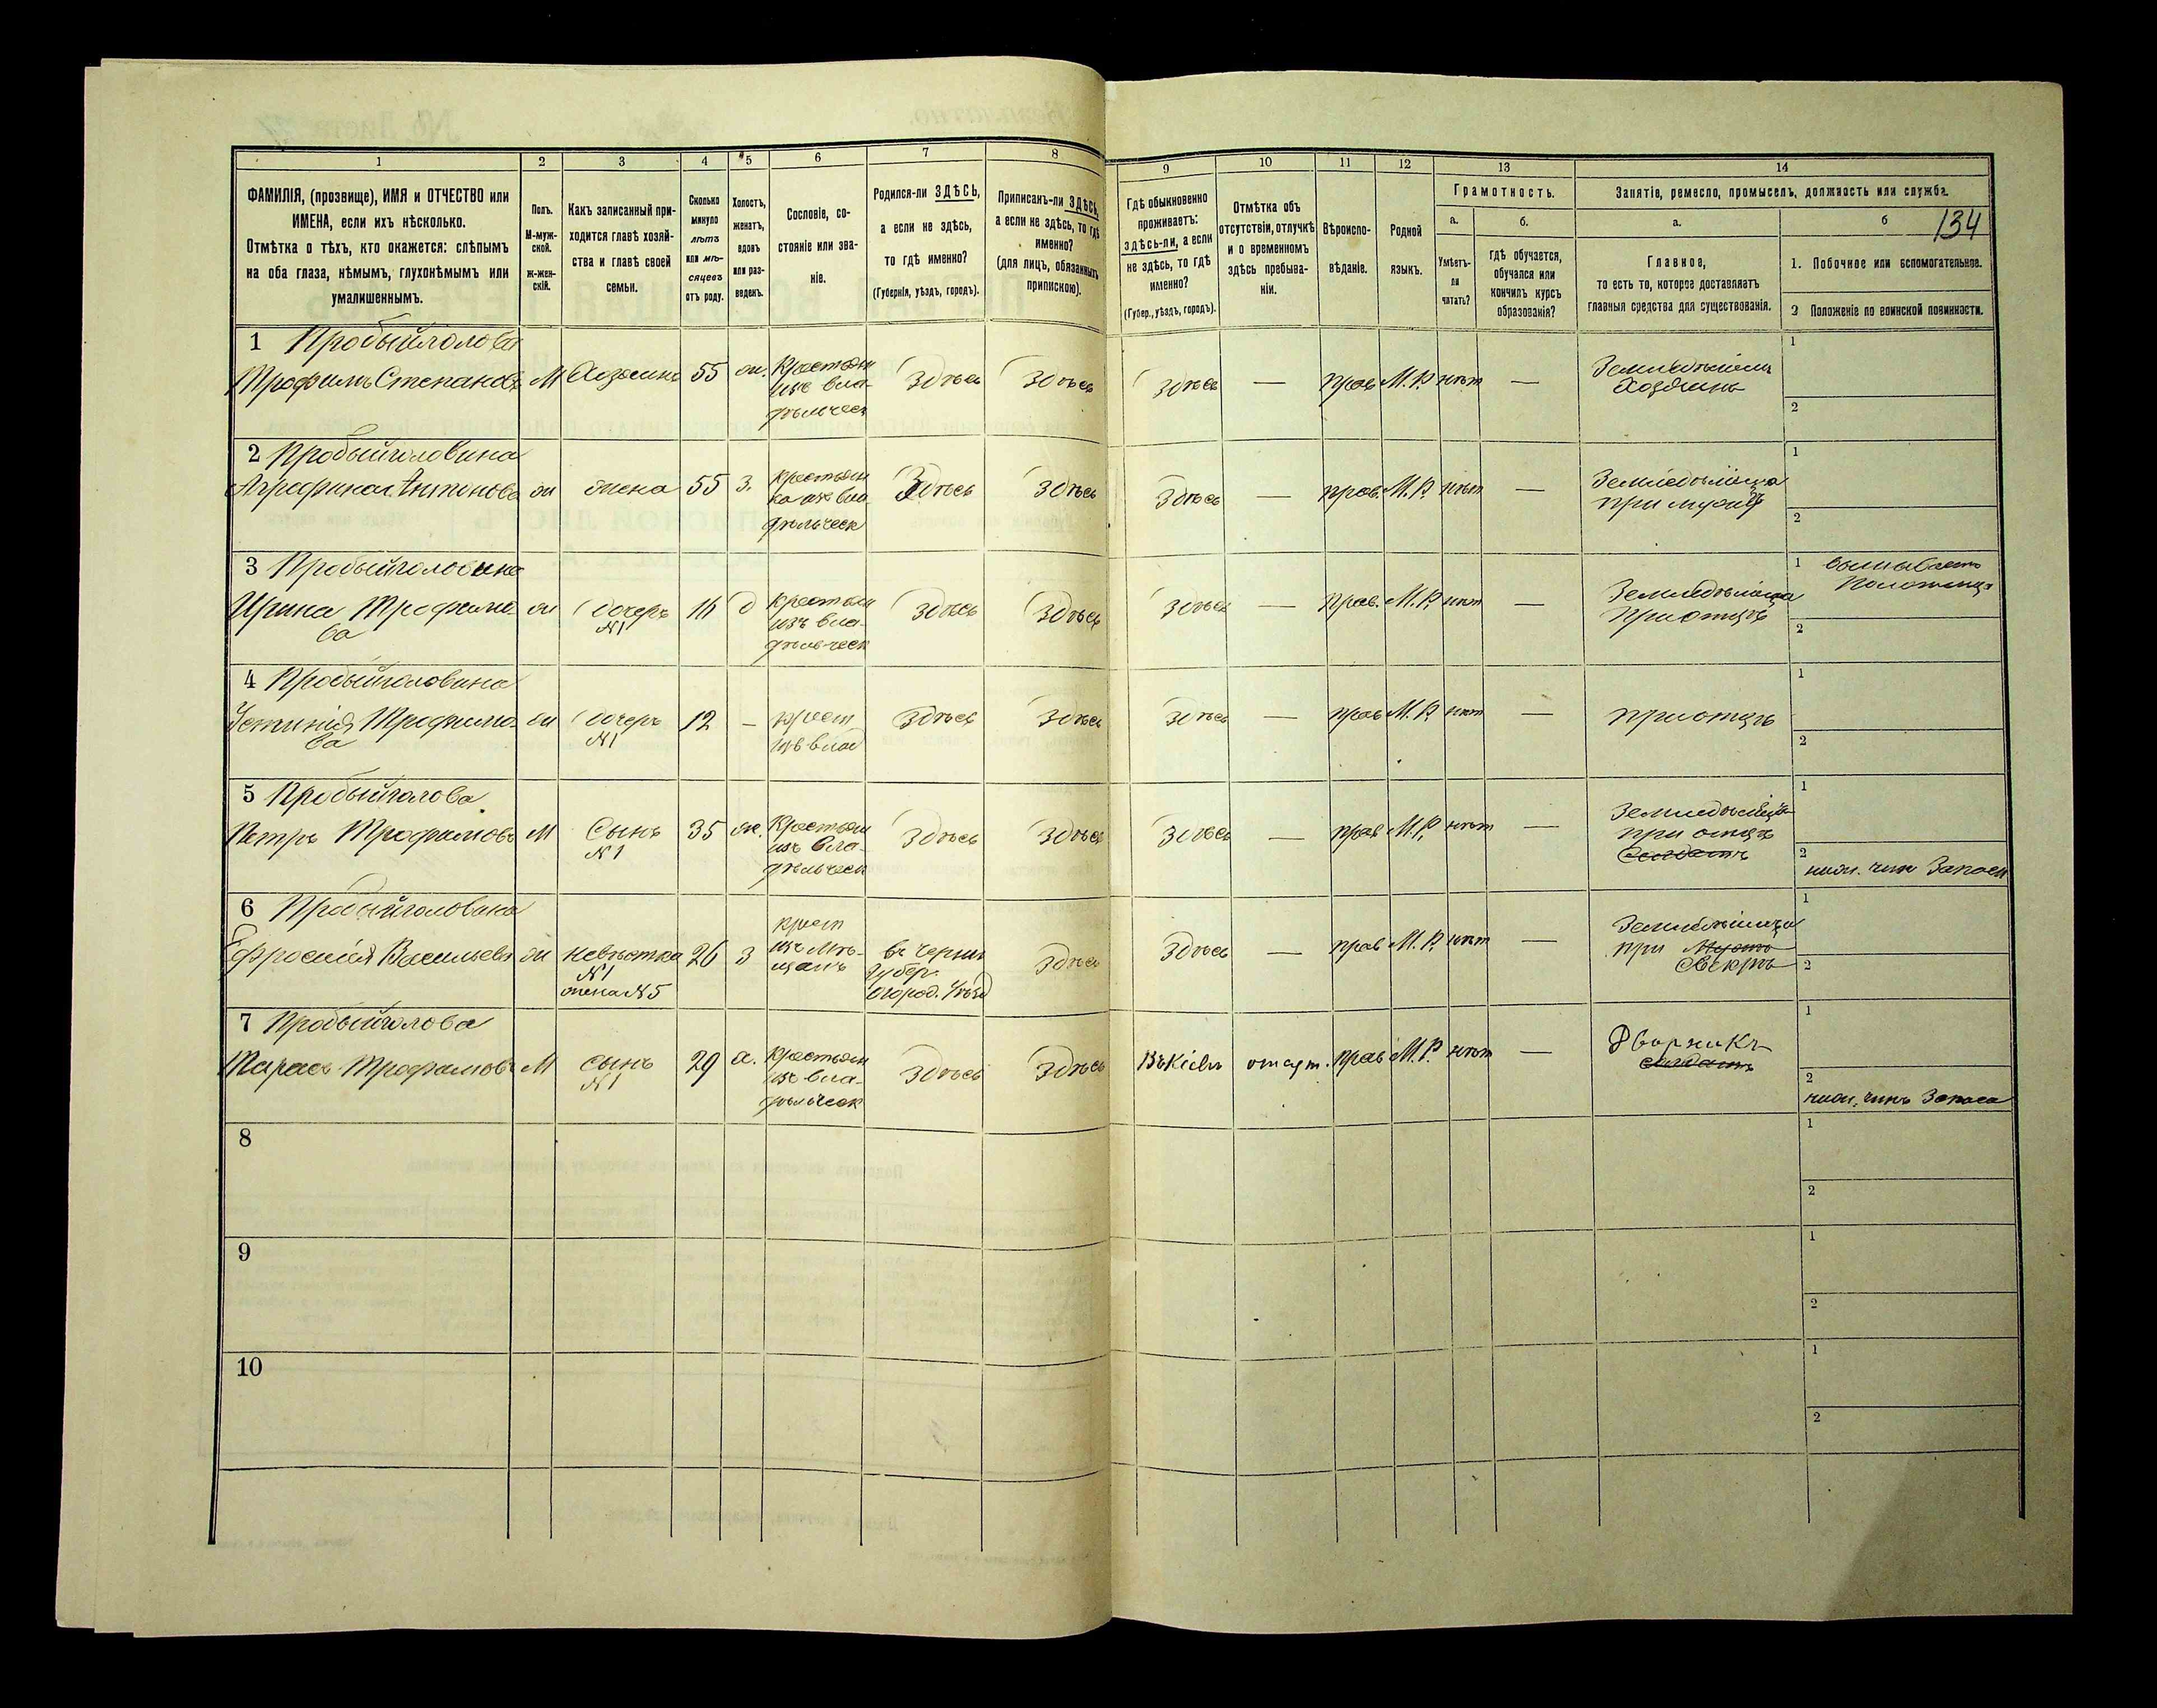 134
1 2 3 4 5 6 7 8 9 10 11 12 13 14
ФАМИЛІЯ, (прозвище), ИМЯ и ОТЧЕСТВО или
ИМЕНА, если ихъ нѣсколько.
Отмѣтка о тѣхъ, кто окажется: слѣпымъ
на оба глаза, нѣмымъ, глухонѣмымъ или
умалишеннымъ.
Полъ.
М-муж-
ской.
Ж-жен-
скій.
Какъ записанный при-
ходится главѣ хозяй-
ства и главѣ своей
семьи.
Сколько
минуло
лѣтъ
или мѣ-
сяцевъ
отъ роду.
Холостъ,
женатъ,
вдовъ
или раз-
веденъ.
Сословіе, со-
стояніе или зва-
ніе.
Родился-ли ЗДѢСЬ,
а если не здѣсь,
то гдѣ именно?
(Губернія, уѣздъ, городъ).
Приписанъ-ли ЗДѢСЬ,
а если не здѣсь, то гдѣ
именно?
(для лицъ, обязанныхъ
припискою).
Гдѣ обыкновенно
проживаетъ:
здѣсь-ли, а если
не здѣсь, то гдѣ
именно?
(Губер., уѣздъ, городъ).
Отмѣтка объ
отсутствіи, отлучкѣ
и о временномъ
здѣсь пребыва-
ніи.
Вѣроиспо-
вѣданіе.
Родной
языкъ.
Грамотность.
а.
Умѣетъ-
ли
читать?
б.
гдѣ обучается,
обучался или
кончилъ курсъ
образованія?
Занятіе, ремесло, промыселъ, должность или служба.
а.
Главное,
то есть то, которое доставляетъ
главныя средства для существованія.
б
1. Побочное или вспомогательное.
2 Положеніе по воинской повинности.
1 Пробыйголова
Трофимъ Степановъ М Хозяинъ 55 ж. Крестьян
изъ вла-
дѣльческ
Здѣсь Здѣсь Здѣсь — прав М.Р. нѣтъ —
Земледѣлецъ
Хозяинъ
1
2
2 Пробыйголовина
Агрефина Антонова ж жена 55 з. крестьян
ка изъ вла
дѣльческ
Здѣсь Здѣсь Здѣсь — прав. М.Р. нѣтъ —
Земледѣлица
при мужѣ
1
2
3 Пробыйголовина
Ирина Трофимо
ва
ж дочерь
№1
16 д крестьян
изъ вла-
дѣльческ
Здѣсь Здѣсь Здѣсь — прав. М.Р. нѣт —
Земледѣлица
при отцѣ
1
полотенца
2
4 Пробыйголовина
Устинія Трофимо-
ва
ж дочерь
№1
12 — крест
изъ влад
Здѣсь Здѣсь Здѣсь — прав М.Р. нѣт —
при отцѣ
1
2
5 Пробыйголова
Петръ Трофимовъ М Сынъ
№1
35 ж. Крестьян
изъ вла-
дѣльческ
Здѣсь Здѣсь Здѣсь — прав М.Р. нѣт —
Земледѣлецъ
при отцѣ
Солдатъ
1
2
нижн. чин Запаса
6 Пробыйголовина
Ефросинія Васильева ж невѣстка
№1
жена №5
26 з крест
изъ Мѣ-
щанъ
въ Черниг
Губер.
Огород. Уѣзд
Здѣсь Здѣсь — прав М.Р. нѣт —
Земледѣлица
при Мужѣ
Свекрѣ
1
2
7 Пробыйголова
Тарасъ Трофимовъ М сынъ
№1
29 х. крестьян
изъ вла-
дѣльческ
Здѣсь Здѣсь Въ Кіевѣ отсут. прав М.Р. нѣт —
Дворникъ
солдатъ
1
2
нижн. чинъ Запаса
8
1
2
9
1
2
10
1
2